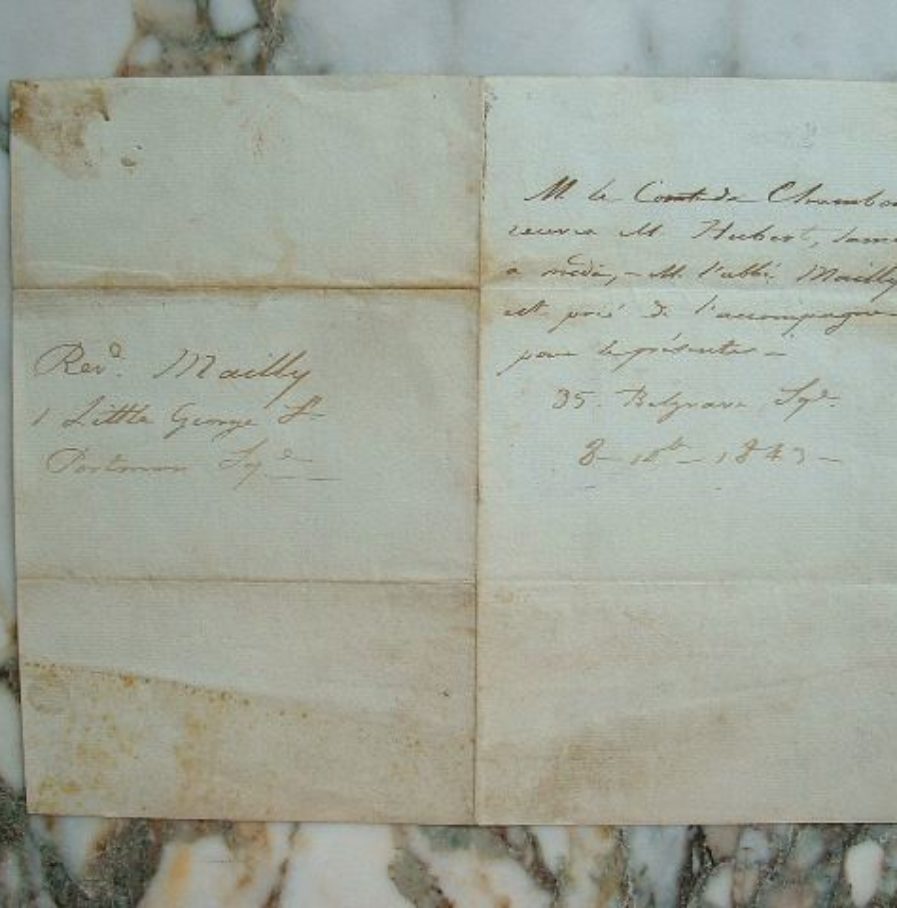 Revd. Mailly
1 Little George St
Portman Sqre
M le Comte de Chambo
recevra M. Hubert, same
a midi, - M. l'abbé Mailly
est prié de l'accompagner
pour le présenter -
35. Belgrave Sqre.
8 - 10bre - 1843 -